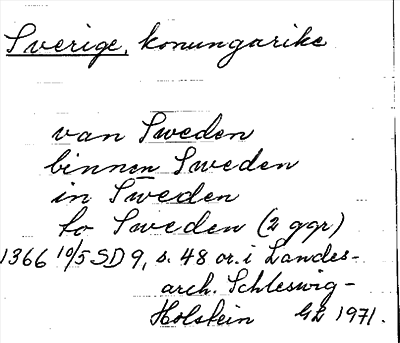 Sverige, konungarike
van Sweden
binnen Sweden
in Sweden
to Sweden (2 ggr)
1366 10/5 SD 9, s. 48 or. i Landes-
arch. Schleswig-
Holstein GL 1971.